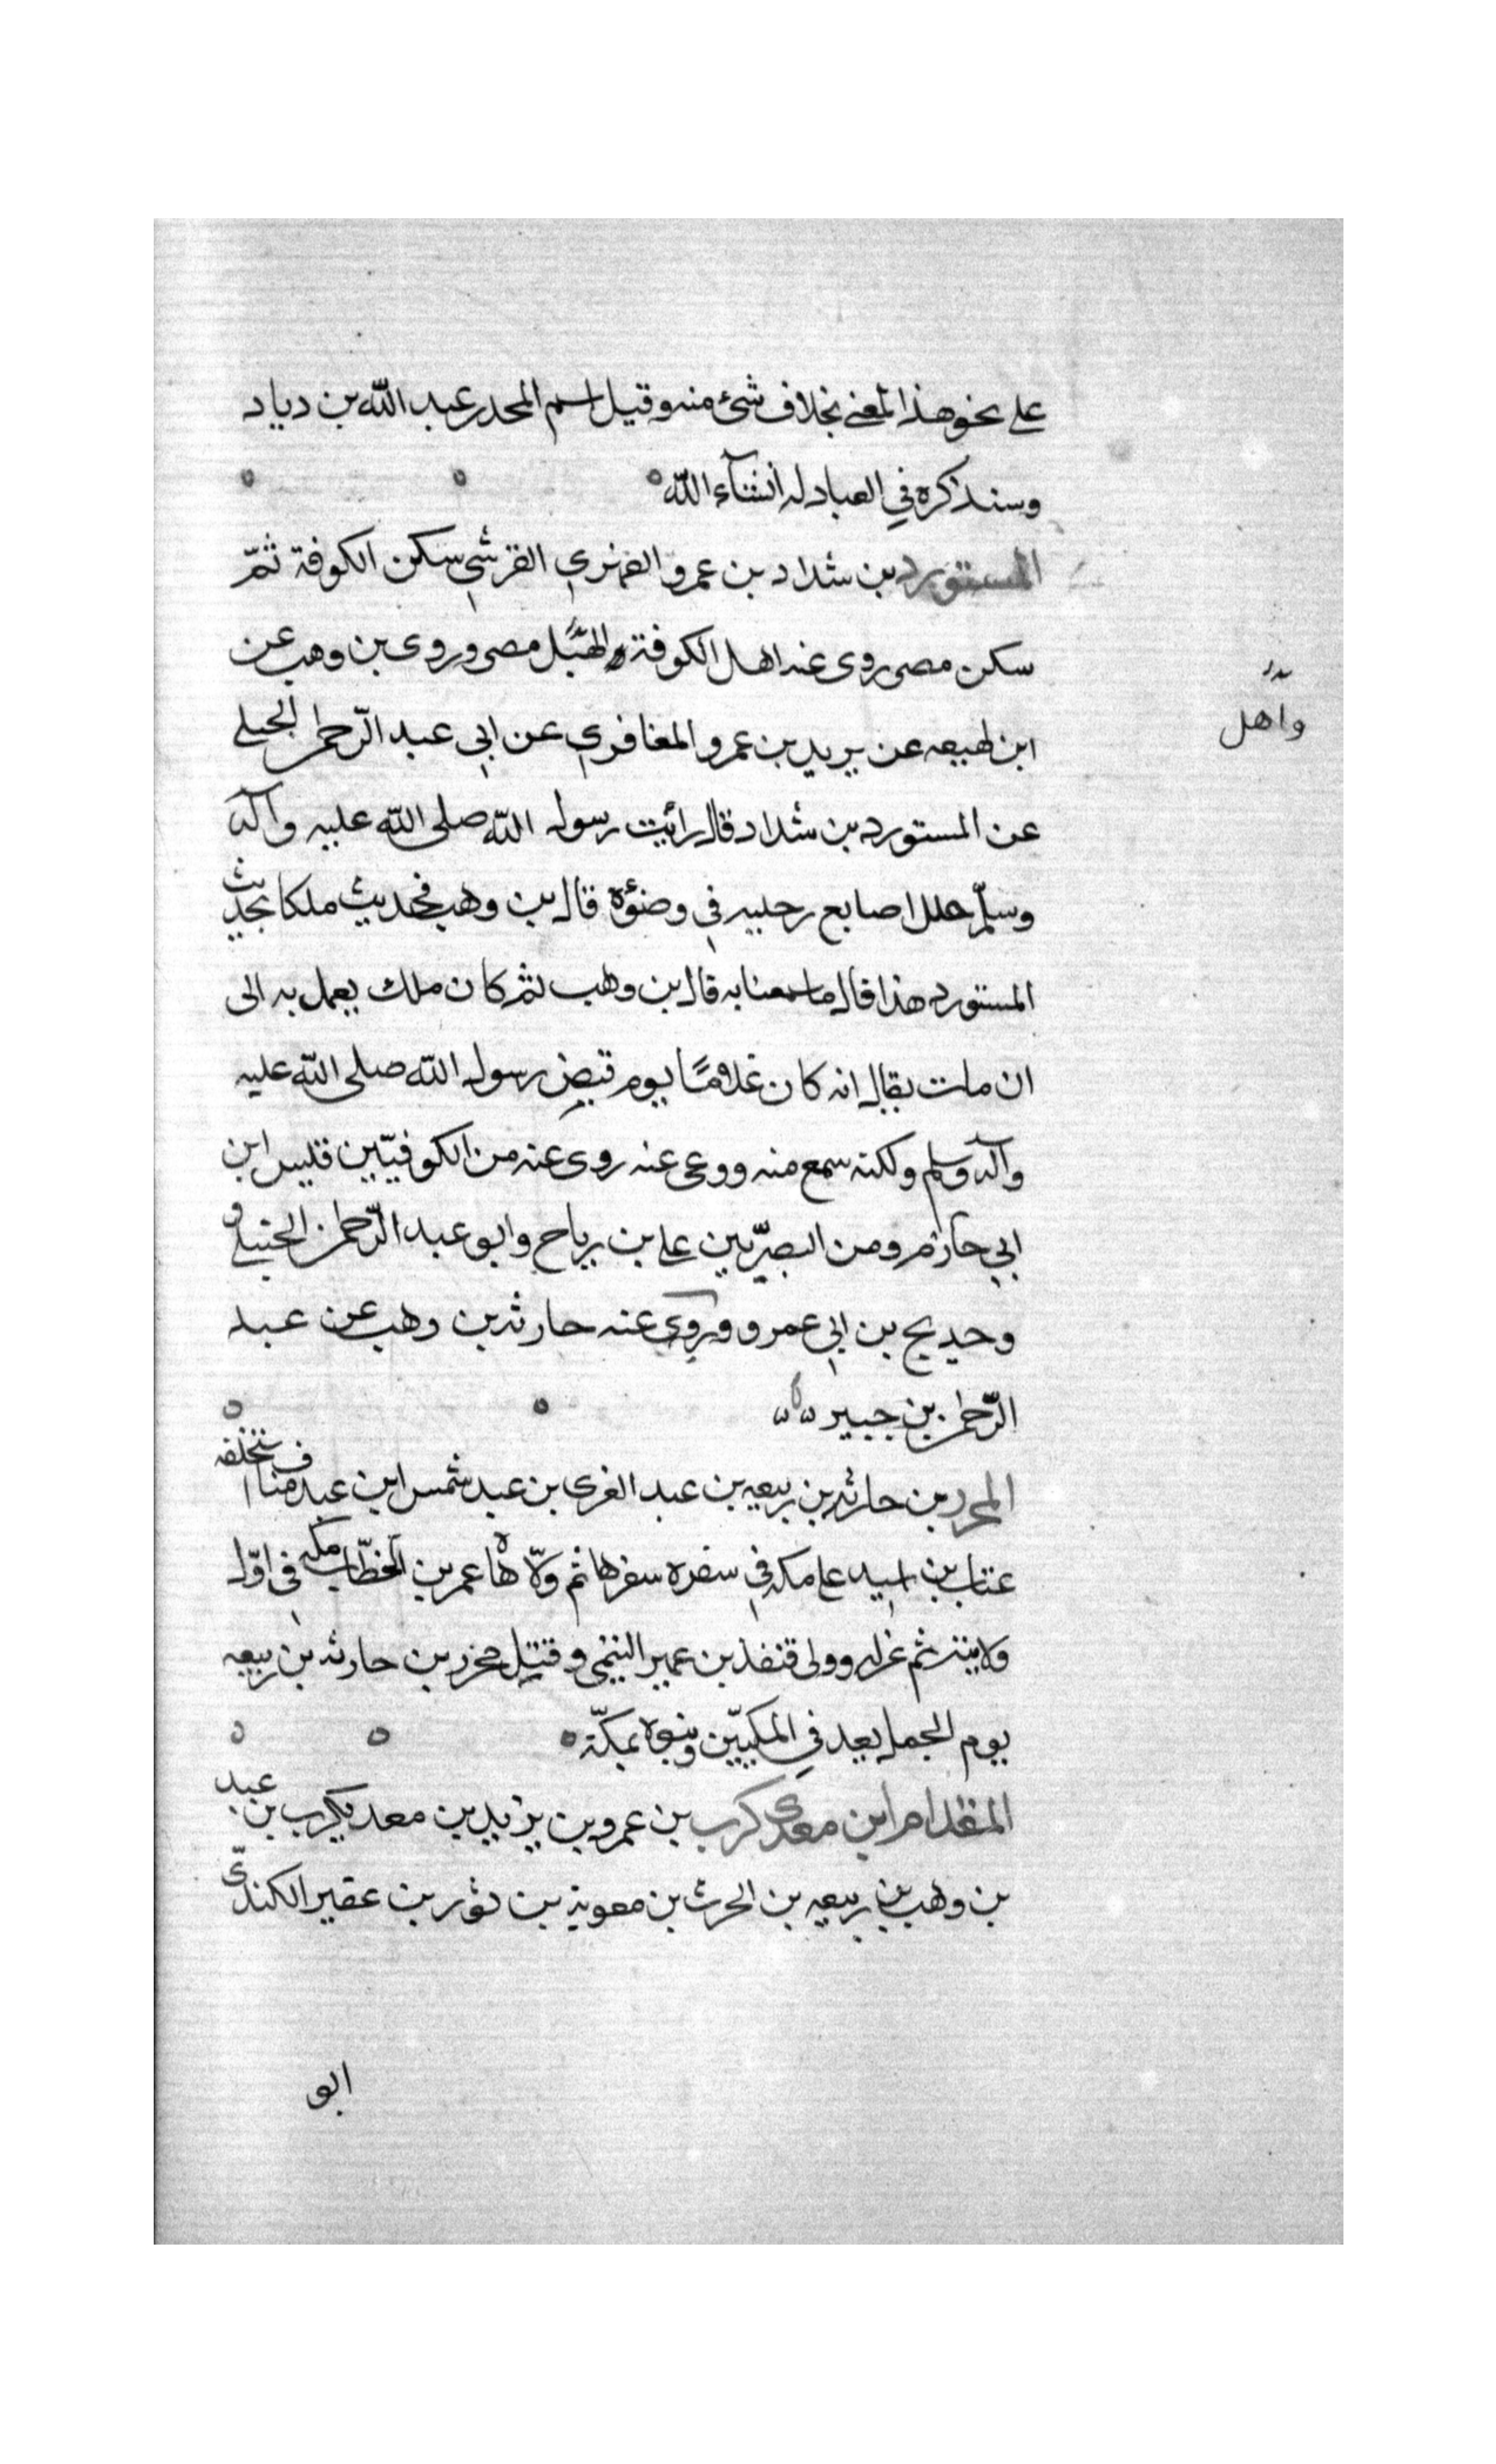 على نحو هذا المعنى بخلاف شئ منه وقيل اسم المحدر عبد اللّه بن دياد
وسنذكره في العبادله انشآء اللّه
المستورد بن شداد بن عمرو الفهري القرشي سكن الكوفة ثمّ
سكن مصر روى عنه اهل الكوفة مصر وروى بن وهب عن
واهل
ابن لهيعه عن يزيد بن عمرو المغافري عن ابي عبد الرّحمن الجبلي
عن المستورد بن شداد قال رائيت رسول اللّه صلى اللّه عليه وآله
وسلّم خلل اصابع رجليه في وضوئه قال بن وهب فحديث ملكا بحديث
المستورد هذا قال ما سمعنا به قال بن وهب ثم كان ملك يعمل به الى
ان مات يقال انه كان غلامًا يوم قبض رسول اللّه صلى اللّه عليه
وآله وسلم ولكنه سمع منه ووعى عنه روى عنه من الكوفيّين قيس ابن
ابي حازم ومن البصريّين على بن رياح وابو عبد الرّحمن الحبلي و
وحديج بن ابي عمرو وروى عنه حارثه بن وهب عن عبد
الرّحمن بن جبير
المحرز بن حارثه بن ربيعه بن عبد الغرى بن عبد شمس ابن عبد مناف تخلفه
عتاب بن اسيد على مكه في سفره سفرها ثم ولّاها عمر بن الخطّاب مكه في اوّل
ولايته ثم عزله وولى قنفذ بن عمير التيمى وقتل محرز بن حارثه بن ربيعه
يوم الجمل يعد في المكيّين وبنوه بمكّة
المقدام ابن معدى كرب بن عمرو بن يزيد بن معديكرب بن عبد
بن وهب بن ربيعه بن الحرث بن معوية بن ثور بن عفير الكندىّ
ابو